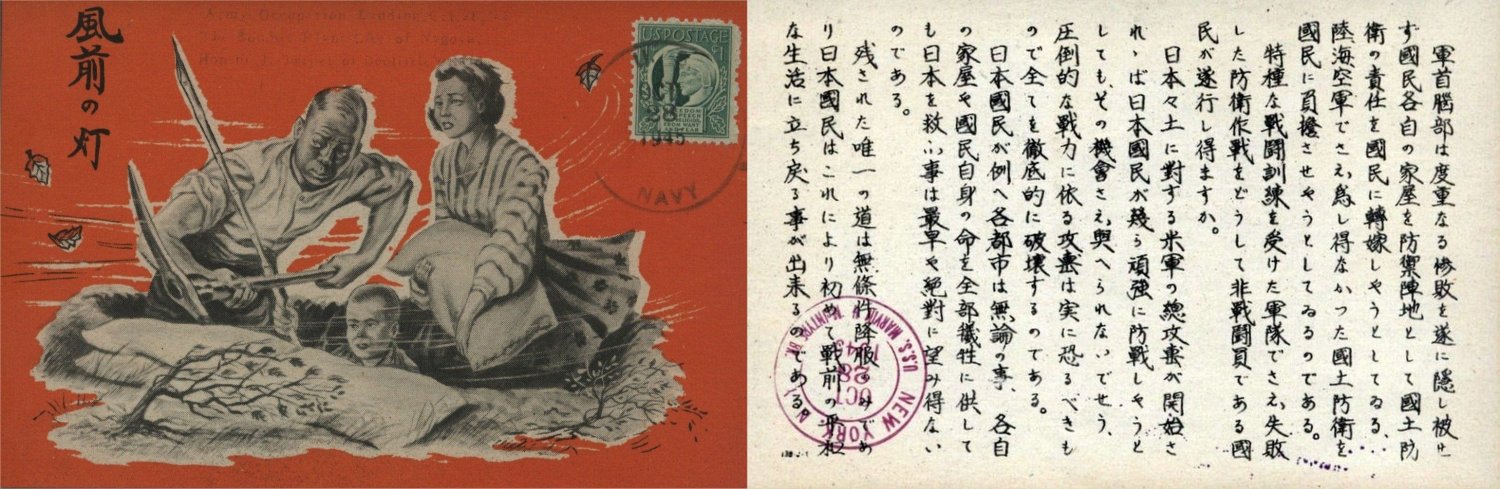 風前の灯
Army Occupation Landing
of Nagoya,
U.S. POSTAGE
OCT
28
1945
NAVY
軍首腦部は度重なる惨敗を遂に隠し被せ
ず國民各自の家屋を防禦陣地として國土防
衛の責任を國民に轉嫁しやうとしてゐる、
陸海空軍でさえ爲し得なかつた國土防衛を
國民に負擔させやうとしてゐるのである。
特種な戰闘訓練を受けた軍隊でさえ失敗
した防衛作戰をどうして非戰闘員である國
民が遂行し得ますか。
日本々土に對する米軍の總攻撃が開始さ
れゝば日本國民が幾ら頑強に防戰しやうと
しても、その機會さえ與へられないでせう、
圧倒的な戰力に依る攻撃は実に恐るべきも
ので全てを徹底的に破壊するのである。
日本國民が例へ各都市は無論の事、各自
の家屋や國民自身の命を全部犠牲に供して
も日本を救ふ事は最早や絶對に望み得ない
のである。
残された唯一の道は無條件降服のみであ
り日本國民はこれにより初めて戰前の平和
な生活に立ち戻る事が出来るのである。
U.S.S. MARVIN H. McINTYRE BR.
OCT
28
1945
NEW YORK